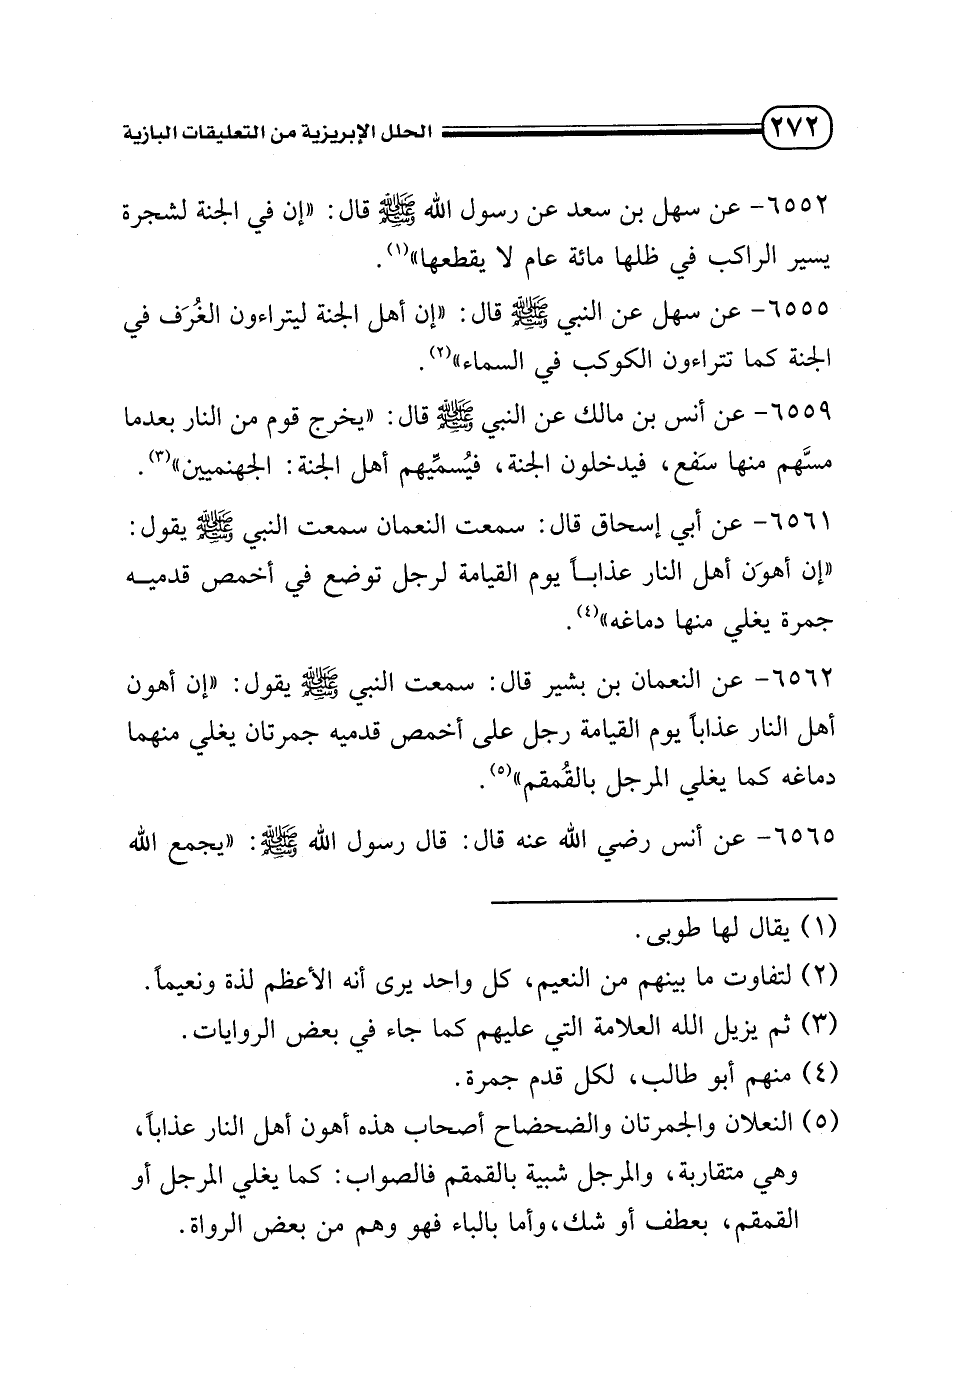 ٢٧٢ الحلل الإبريزية من التعليقات البازية
٦٥٥٢- عن سهل بن سعد عن رسول الله ﷺ قال: «إن في الجنة لشجرة
يسير الراكب في ظلها مائة عام لا يقطعها»(١).
٦٥٥٥- عن سهل عن النبي ﷺ قال: «إن أهل الجنة ليتراءون الغُرَف في
الجنة كما تتراءون الكوكب في السماء»(٢).
٦٥٥٩- عن أنس بن مالك عن النبي ﷺ قال: «يخرج قوم من النار بعدما
مسَّهم منها سَفع، فيدخلون الجنة، فيُسمِّيهم أهل الجنة: الجهنميين»(٣).
٦٥٦١- عن أبي إسحاق قال: سمعت النعمان سمعت النبي ﷺ يقول:
«إن أهوَن أهل النار عذاباً يوم القيامة لرجل توضع في أخمص قدميه
جمرة يغلي منها دماغه»(٤).
٦٥٦٢- عن النعمان بن بشير قال: سمعت النبي ﷺ يقول: «إن أهون
أهل النار عذاباً يوم القيامة رجل على أخمص قدميه جمرتان يغلي منهما
دماغه كما يغلي المرجل بالقُمقم»(٥).
٦٥٦٥- عن أنس رضي الله عنه قال: قال رسول الله ﷺ: «يجمع الله
(١) يقال لها طوبى.
(٢) لتفاوت ما بينهم من النعيم، كل واحد يرى أنه الأعظم لذة ونعيماً.
(٣) ثم يزيل الله العلامة التي عليهم كما جاء في بعض الروايات.
(٤) منهم أبو طالب، لكل قدم جمرة.
(٥) النعلان والجمرتان والضحضاح أصحاب هذه أهون أهل النار عذاباً،
وهي متقاربة، والمرجل شبية بالقمقم فالصواب: كما يغلي المرجل أو
القمقم، بعطف أو شك،وأما بالباء فهو وهم من بعض الرواة.